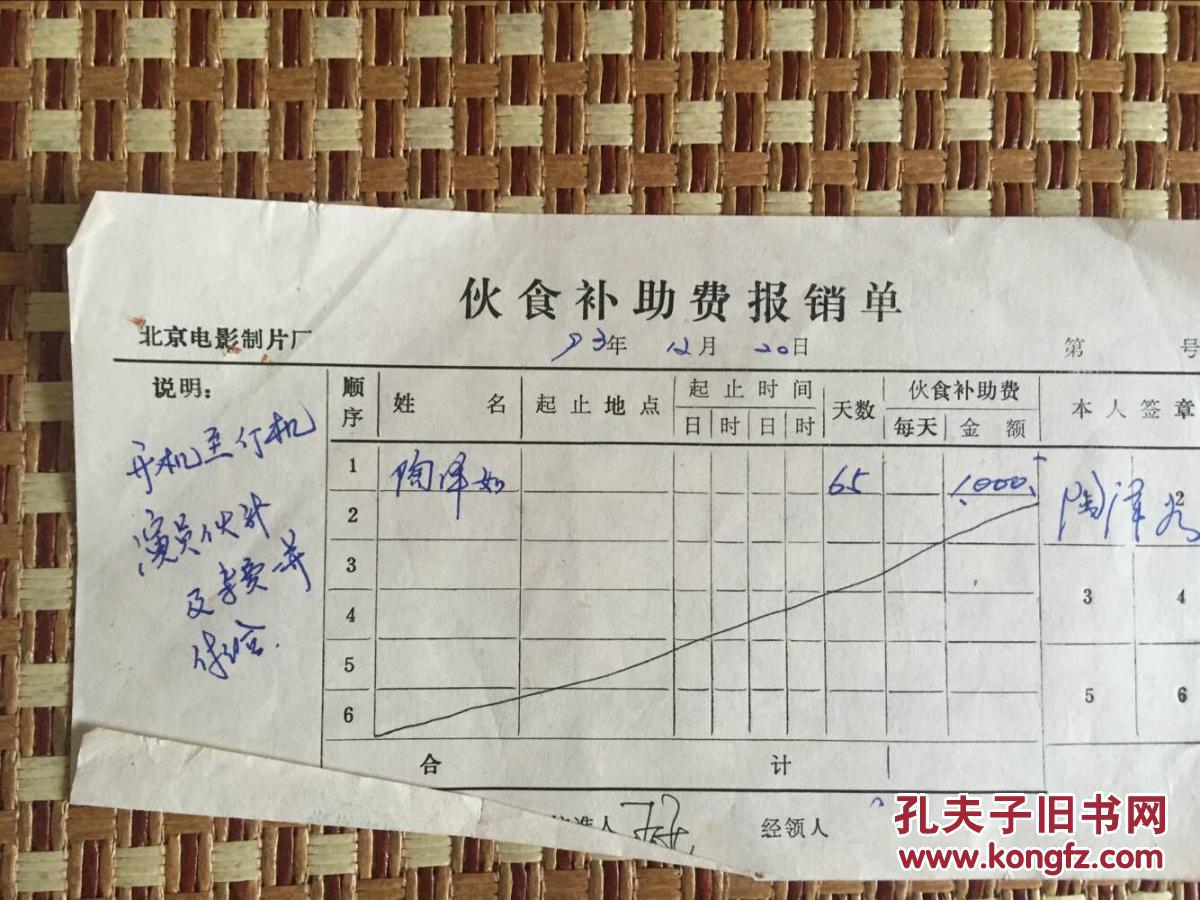 伙食补助费报销单
北京电影制片厂
93年 12月 20日
第 号
说明:
开机至
演员伙
顺序 姓名 起止地点 起止时间 天数 伙食补助费 本人签章
日 时 日 时 每天 金额
1 陶泽如 65 1000
2
3
4
5
6
陶泽如
2
3 4
5 6
合计
批准人
经领人
孔夫子旧书网
www.kongfz.com